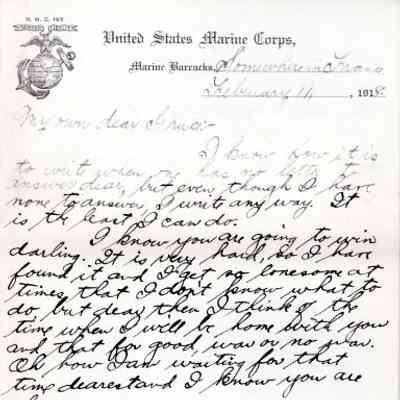 N. M. C. 165
United States Marine Corps,
Marine Barracks, Somewhere in France
February 11, 1918.
My own dear
I know how it is
to write when one has no letter to
answer dear, but even though I have
none to answer, I write any way. It
is the least I can do.
I know you are going to win
darling. It is very hard, so I have
found it and I get so lonesome at
times that I don't know what to
do, but dear, then I think of the
time when I will be home with you
and that for good, war or no war.
Oh how I am waiting for that
time dearest and I know you are